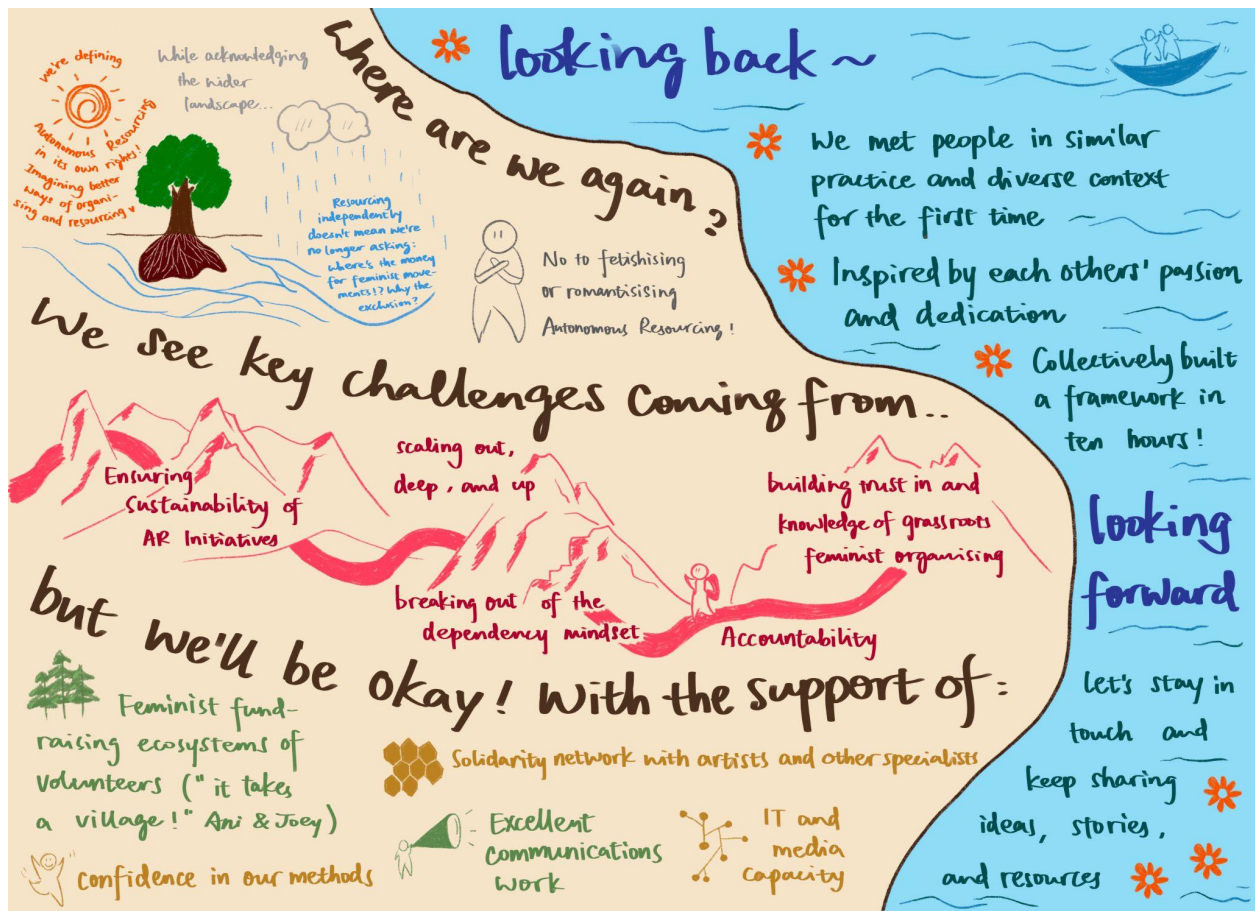 We're defining
Autonomous Resourcing
in its own rights!
Imagining better
ways of organi-
sing and resourcing
While acknowledging
the wider
landscape...
Resourcing
independently
doesn't mean we're
no longer asking:
where's the money
for feminist move-
ments!? Why the
exclusion?
Where are we again?
No to fetishising
or romantisising
Autonomous Resourcing!
We see key challenges coming from..
Ensuring
Sustainability of
AR Initiatives
scaling out,
deep, and up
breaking out of the
dependency mindset
building trust in and
knowledge of grassroots
feminist organising
Accountability
but we'll be okay! With the support of:
Feminist fund-
raising ecosystems of
volunteers ("it takes
a village!" Ani & Joey)
Confidence in our methods
Solidarity network with artists and other specialists
Excellent
Communications
Work
IT and
media
capacity
looking back ~
We met people in similar
practice and diverse context
for the first time
Inspired by each others' passion
and dedication
Collectively built
a framework in
ten hours!
looking
forward
Let's stay in
touch and
keep sharing
ideas, stories,
and resources